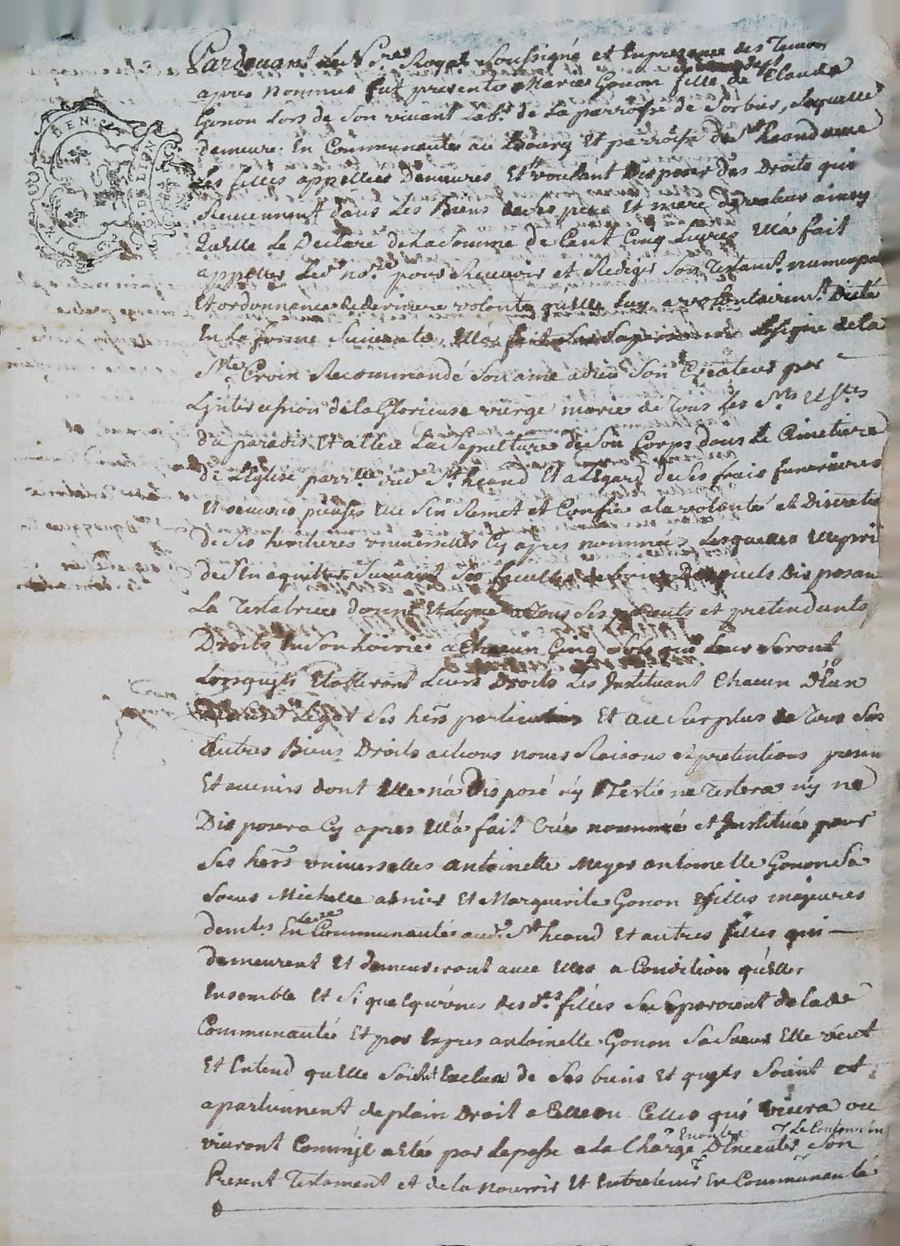 Pardevant Le Nre Royal Soussigné et En presance des Temoin
apres nommes fut presente Marie Gonon fille de Claude
Gonon Lors de Son vivant Labr. de La parroisse de Sorbier, Laquelle
demeure En Communauté au Bourg Et parroisse de St heand avec
Les filles appellées Demeures Et voulant Disposer des Droits qui
Reviennent dans Les Biens de Ses pere Et mere de valeur ainsy
Quelle Le Declare de La Somme de Cent Cinq Livres Elle a fait
appeller Led. nore pour Recevoir et Rediger Son Testamt. nuncupa
Et ordonnance de derniere volonté quelle luy a volontairemt. Dicté
En La forme Suivante, Elle a fait Le Signe de La
Ste Croix Recommandé Son ame a dieu Son Createur par
L'intercession de La Glorieuse vierge marie de Tous Les Sts Et Stes
du paradis Et a Elleu La Sepulture de Son Corps dans Le Cimetiere
De L'Eglise parr.lle dud. St heand Et a L'Egard de Ses frais funeraires
Et oeuvres pieuses Elle S'En Remet et Confie a la volonté et Discretion
de Ses heritieres universelles Cy apres nommées Lesquelles Elle pri
de S'En aquitter Suivant Ses facultés Desquels Disposant
La Testatrice donne Et Legue a Tous Ses parents et pretendants
Droits En Son hoirie a Chacun Cinq Sols qui Leur Seront
Lorsqu'ils Etabliront Leurs Droits Les Instituant Chacun D'Eux
Legat Ses hers particuliers Et au Surplus de Tous Ses
autres Biens Droits actions noms Raisons Et pretentions presen
Et avenirs dont Elle n'a Disposé n'y Testé ne Testera n'y ne
Disposera Cy apres Elle a fait Créé nommée et Instituée pour
Ses hers universelles antoinette Meyer antoinette Gonon Sa
Soeur Michelle et Marguerite Gonon filles majeures
demtes. En Lade Communauté aud. St heand Et autres filles qui
demeurent Et demeureront avec Elles a Condition qu'elles
Ensemble Et Si quelqu'unes des des filles Se Separoient de lade
Communauté Et par Exprès antoinette Gonon Sa Soeur Elle veut
Et Entend qu'elle Soit Exclue de Ses biens Et qu'ils Soient et
apartiennent de plain Droit a Celle ou Celles qui vivra ou
vivront Comme a La Charge D'Executer Son
Present Testament et de La nourrir Et Entretenir En Communauté